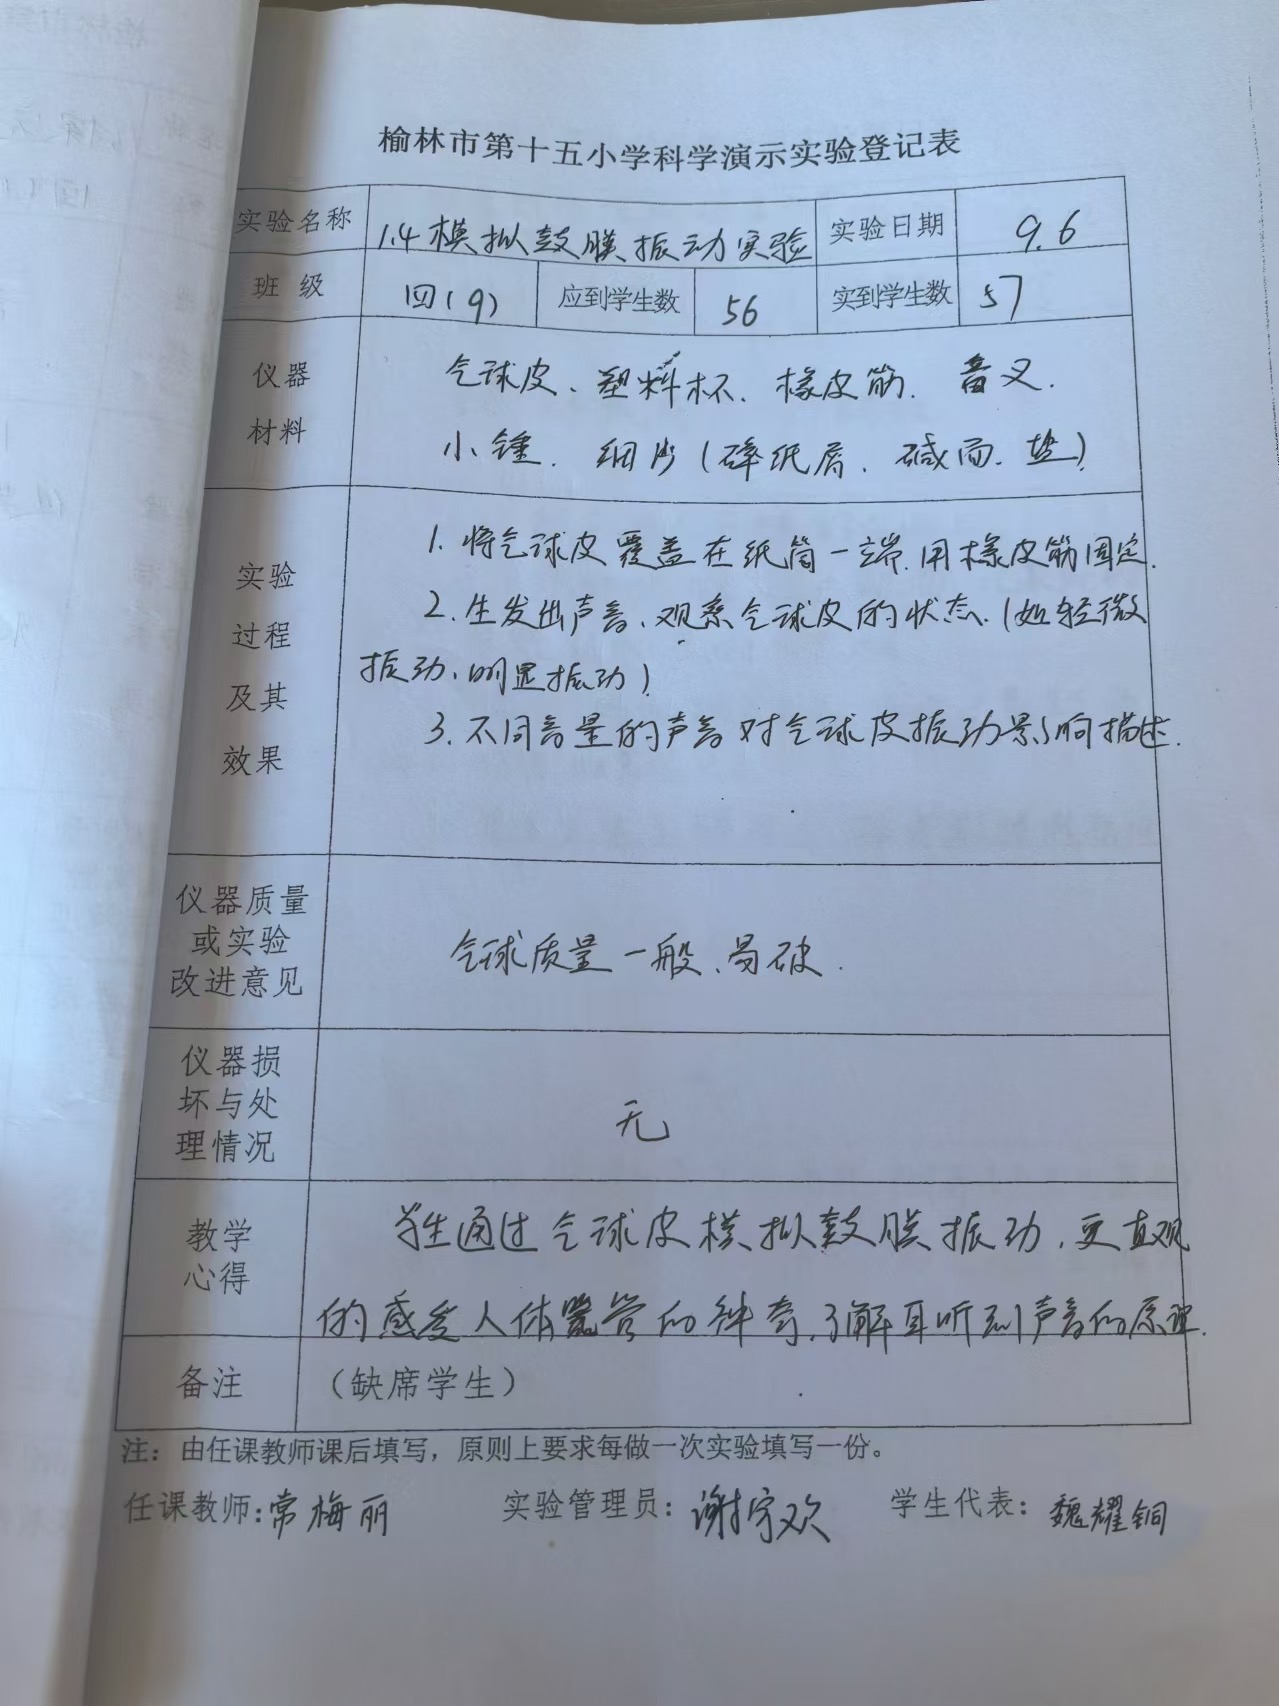 榆林市第十五小学科学演示实验登记表
实验名称 1.4模拟鼓膜振动实验 实验日期 9.6
班 级 四(9) 应到学生数 56 实到学生数 57
仪器 气球皮、塑料杯、橡皮筋、音叉.
材料 小锤、细沙(碎纸屑、碱面、盐)
实验 1.将气球皮覆盖在纸筒一端.用橡皮筋固定.
过程 2.生发出声音、观察气球皮的状态.(如轻微
及其 振动、明显振动)
效果 3.不同音量的声音对气球皮振动影响描述.
仪器质量
或实验 气球质量一般、易破.
改进意见
仪器损
坏与处 无
理情况
教学 学生通过气球皮模拟鼓膜振动,更直观
心得 的感受人体器官的神奇,了解耳听到声音的原理.
备注 (缺席学生)
注:由任课教师课后填写,原则上要求每做一次实验填写一份。
任课教师:常梅丽 实验管理员:谢宇欢 学生代表:魏耀铜